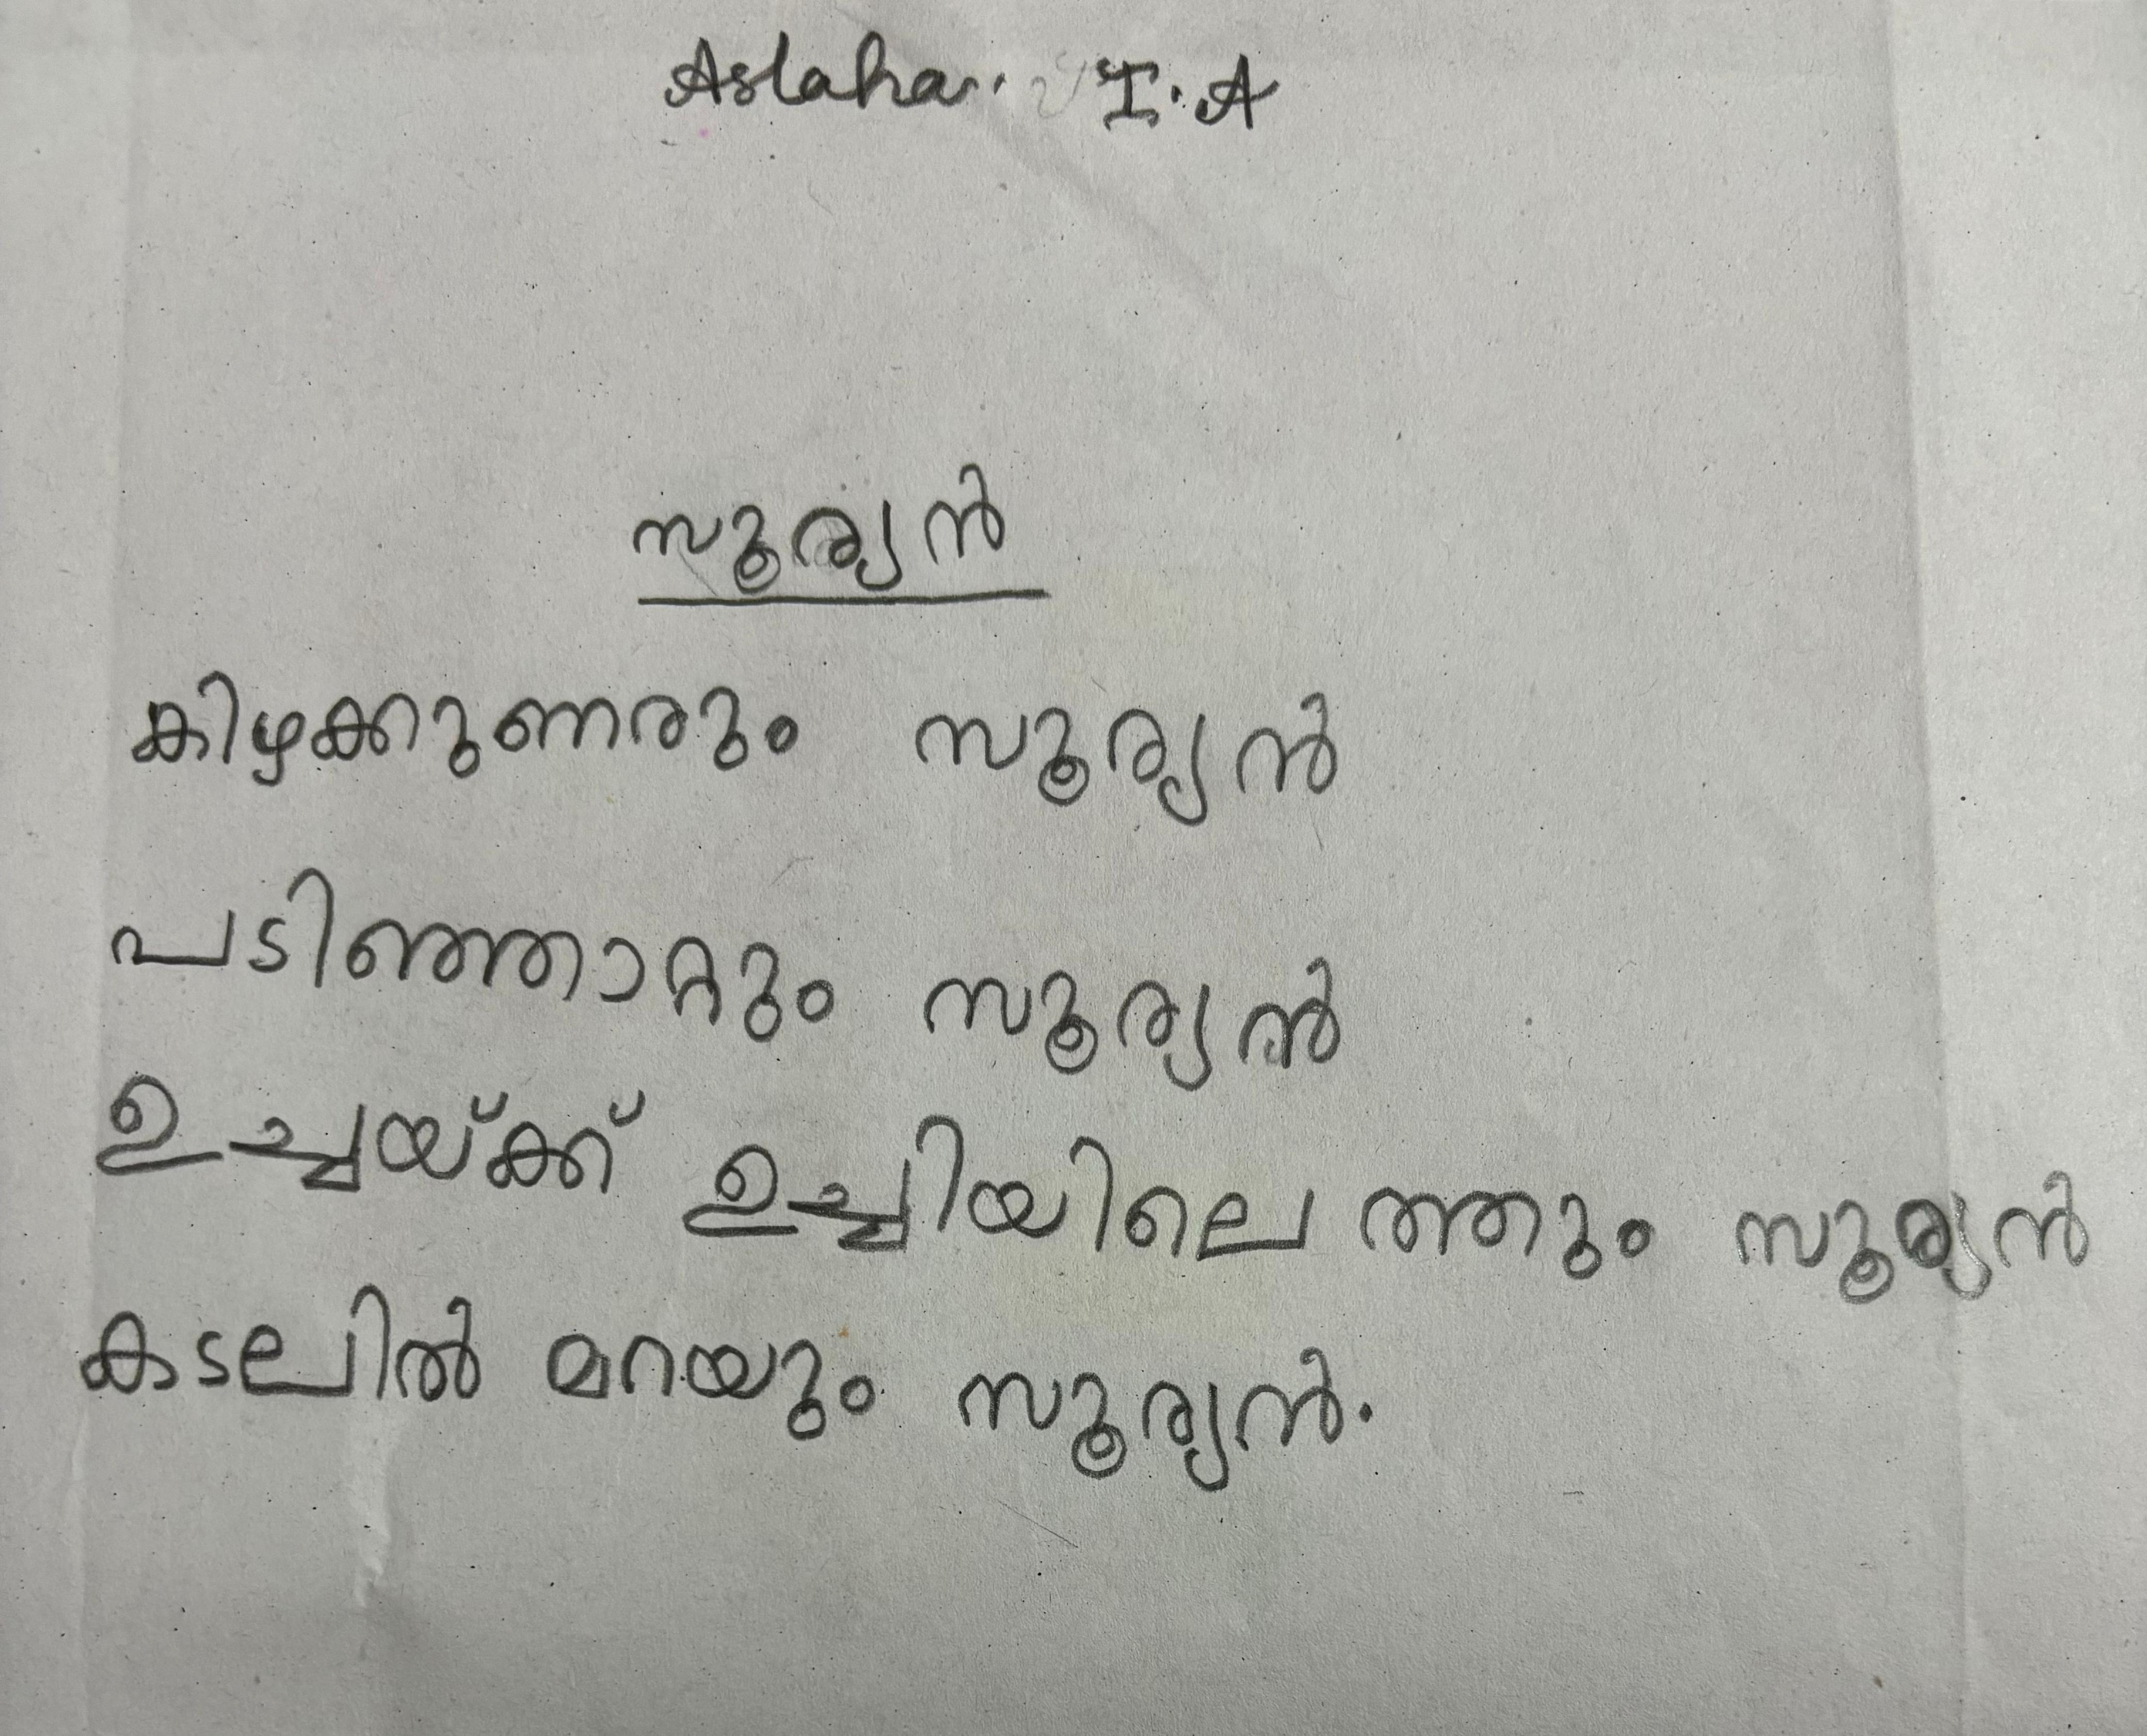 Aslaha. I.A
സൂര്യൻ
കിഴക്കുണരും സൂര്യൻ
പടിഞ്ഞാറ്റും സൂര്യൻ
ഉച്ചയ്ക്ക് ഉച്ചിയിലെത്തും സൂര്യൻ
കടലിൽ മറയും സൂര്യൻ.